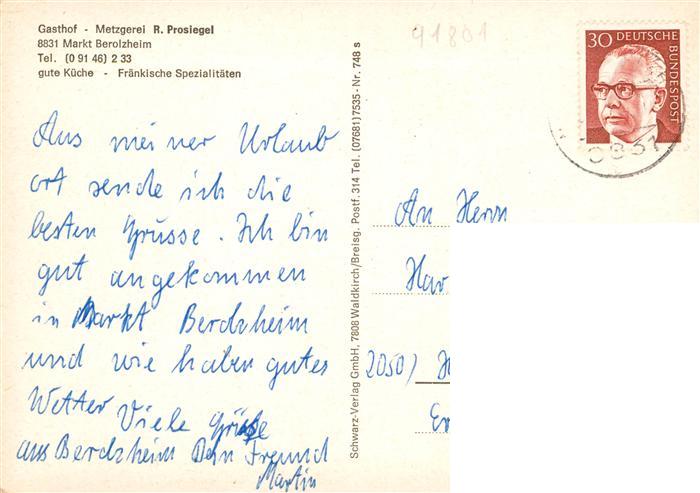 Gasthof - Metzgerei R. Prosiegel
8831 Markt Berolzheim
Tel. (0 91 46) 2 33
gute Küche - Fränkische Spezialitäten
Aus meiner Urlaub
ort sende ich die
besten Grüsse. Ich bin
gut angekommen
in Markt Berolzheim
und wie haben gutes
Wetter Viele Grüße
aus Berolzheim Dein Freund
Martin
Schwarz-Verlag GmbH, 7808 Waldkirch/Breisg. Postf. 314 Tel. (07681) 7535 - Nr. 748 s
91801
30 DEUTSCHE
BUNDESPOST
8831
An Herrn
Har
2050) H
Er